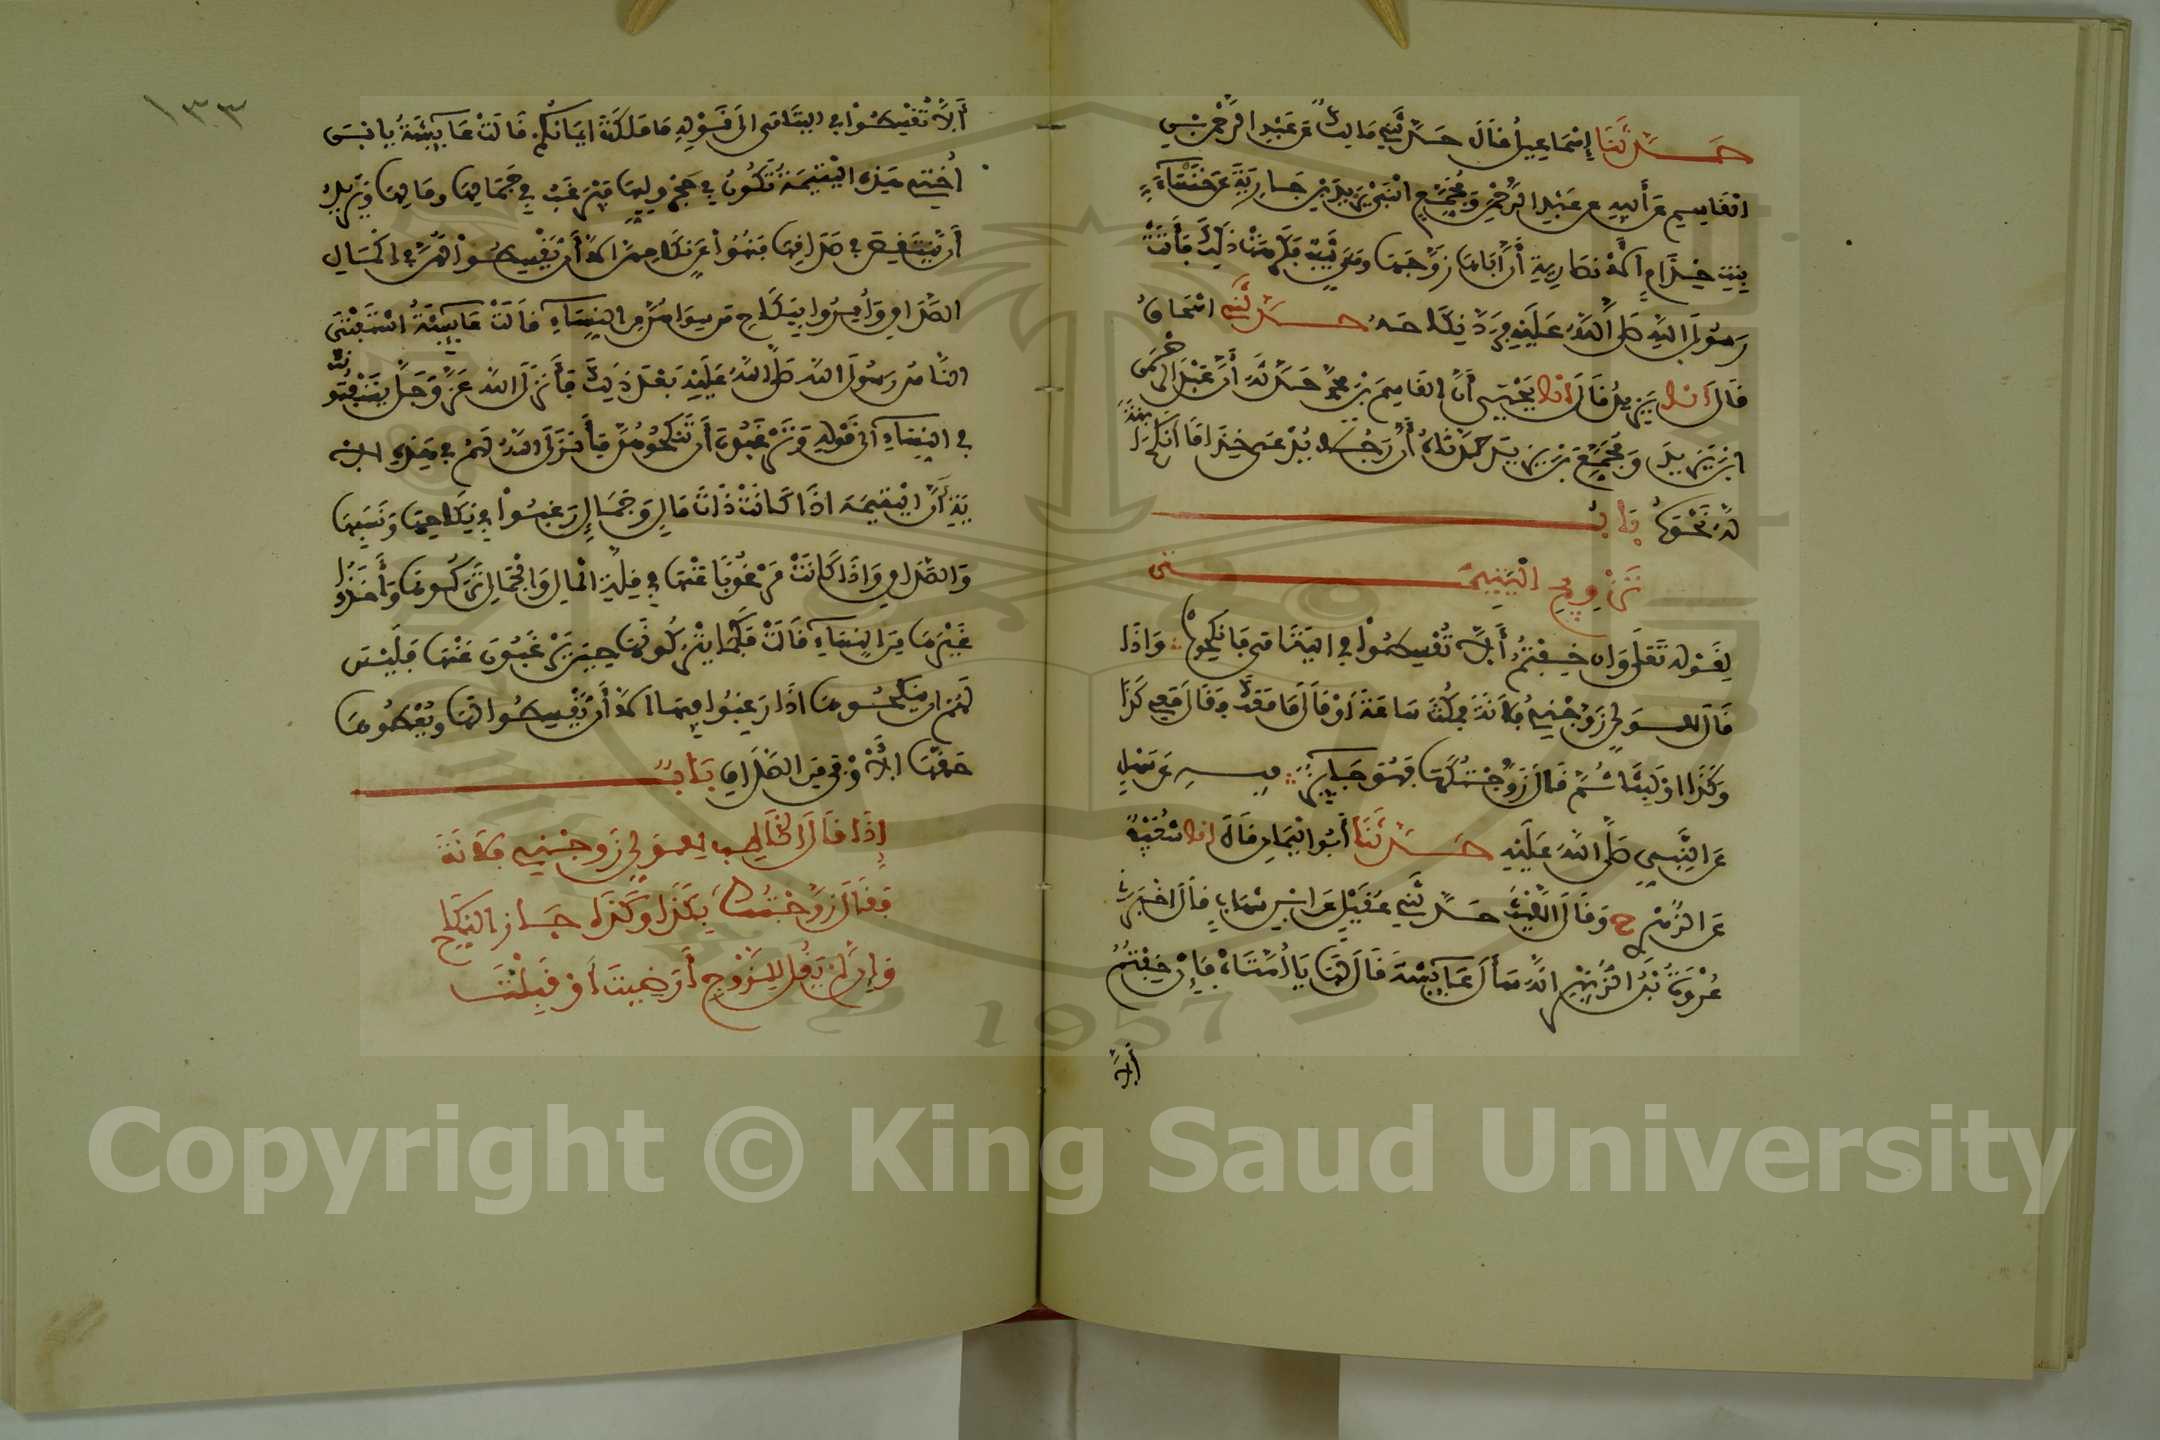 حدثنا إسماعيل قال حدثني مالك عن عبد الرحمن بن
القاسم عن أبيه عن عبد الرحمن ومجمع ابني يزيد بن جارية عن خنساء
بنت خذام الأنصارية أن أباها زوجها وهي ثيب فكرهت ذلك فأتت
رسول الله صلى الله عليه فرد نكاحه حدثني اسحاق
قال انا يزيد قال انا يحيى أن القاسم بن محمد حدثه أن عبد الرحمن
ابن يزيد ومجمع بن يزيد حدثاه أن رجلا يدعى خذاما انكح ابنة
له نحوه باب
تزويج اليتيمة
لقوله تعلى وان خفتم ألا تقسطوا في اليتامى فانكحوا وإذا
قال للولي زوجني فلانة فمكث ساعة أو قال ما معك فقال معي كذا
وكذا او لبثا ثم قال زوجتكها فهو جايز فيه عن سهل
عن النبي صلى الله عليه حدثنا أبو اليمان قال انا شعيب
عن الزهري ح وقال الليث حدثني عقيل عن ابن شهاب قال اخبرني
عروة بن الزبير انه سأل عايشة قال لها يا أمتاه فإن خفتم
ألا
١٣٣
ألا تقسطوا في اليتامى الى قوله ما ملكت ايمانكم قالت عايشة يا ابن
أختي هذه اليتيمة تكون في حجر وليها فيرغب في جمالها ومالها ويريد
أن ينتقص في صداقها فنهوا عن نكاحهن الا أن يقسطوا لهن في اكمال
الصداق وأمروا بنكاح من سواهن من النساء قالت عايشة استفتى
الناس رسول الله صلى الله عليه بعد ذلك فأنزل الله عز وجل يستفتونك
في النساء الى قوله وترغبون أن تنكحوهن فأنزل الله لهم في هذه الا
ية أن اليتيمة اذا كانت ذات مال وجمال رغبوا في نكاحها ونسبها
والصداق واذا كانت مرغوبا عنها في قلة المال والجمال تركوها وأخذوا
غيرها من النساء قالت فكما يتركونها حين يرغبون عنها فليس
لهم ان ينكحوها اذا رغبوا فيها الا أن يقسطوا لها ويعطوها
حقها الأوفى من الصداق باب
إذا قال الخاطب للولي زوجني فلانة
فقال زوجتك بكذا وكذا جاز النكاح
وإن لم يقل للزوج أرضيت أو قبلت
Copyright © King Saud University
1957